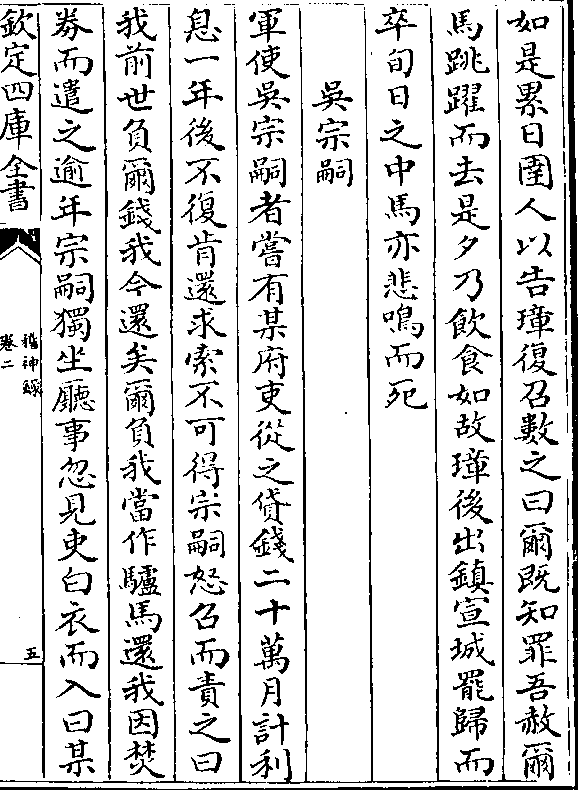 如是累日圉人以告璋復召數之曰爾既知罪吾赦爾
馬跳躍而去是夕乃飲食如故璋後出鎮宣城罷歸而
卒旬日之中馬亦悲鳴而死
吳宗嗣
軍使吳宗嗣者嘗有某府吏從之貸錢二十萬月計利
息一年後不復肯還求索不可得宗嗣怒召而責之曰
我前世負爾錢我今還矣爾負我當作驢馬還我因焚
券而遣之逾年宗嗣獨坐廳事忽見吏白衣而入曰某
欽定四庫全書
稽神録
卷二
五